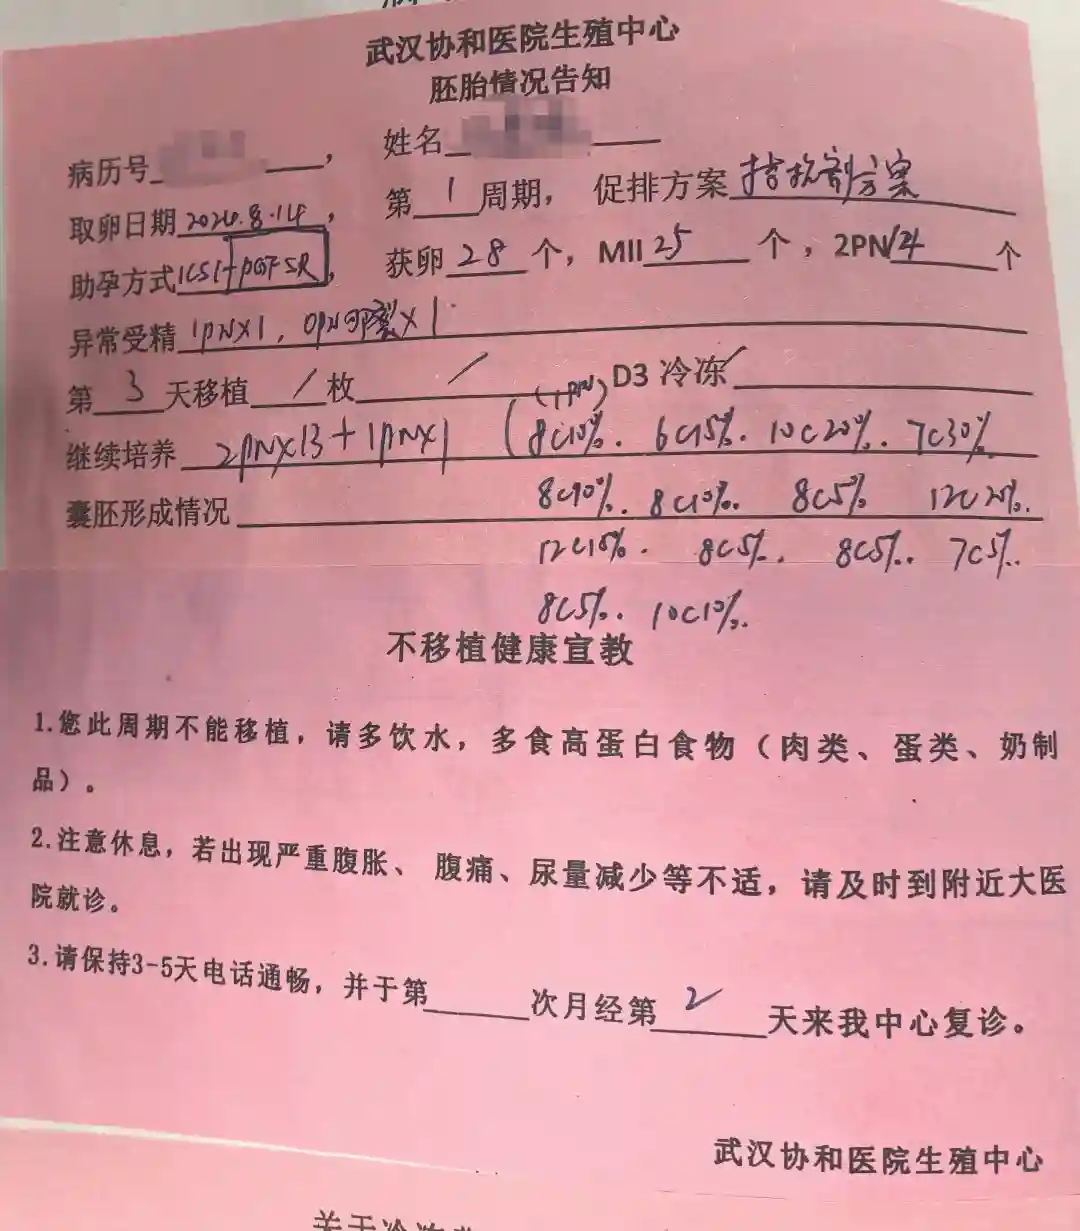 武汉协和医院生殖中心
胚胎情况告知
病历号____, 姓名____
取卵日期 2024.8.14, 第 1 周期, 促排方案 拮抗剂方案
助孕方式 ICSI+PGTSR, 获卵 28 个, MII 25 个, 2PN 24 个
异常受精 1PN×1, 0PN可裂×1
第 3 天移植 / 枚 / D3 冷冻 /
(1PN)
继续培养 2PN×13+1PN×1 (8C10%. 6C15%. 10C20%. 7C30%
囊胚形成情况 8C10%. 8C10%. 8C5% 12C20%.
12C15%. 8C5%. 8C5%. 7C5%.
8C5%. 10C10%.
不移植健康宣教
1.您此周期不能移植，请多饮水，多食高蛋白食物（肉类、蛋类、奶制
品）。
2.注意休息，若出现严重腹胀、 腹痛、尿量减少等不适，请及时到附近大医
院就诊。
3.请保持3-5天电话通畅，并于第____次月经第 2 天来我中心复诊。
武汉协和医院生殖中心
关于冷冻